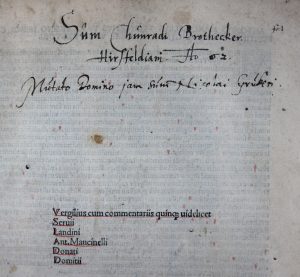 Sum Chunradi Brothecker
Hirsfeldiani Ao 62
Mutato Domino jam sum
Vergilius cum commentariis quinq; uidelicet
Seruii
Landini
Ant. Mancinelli
Donati
Domitii